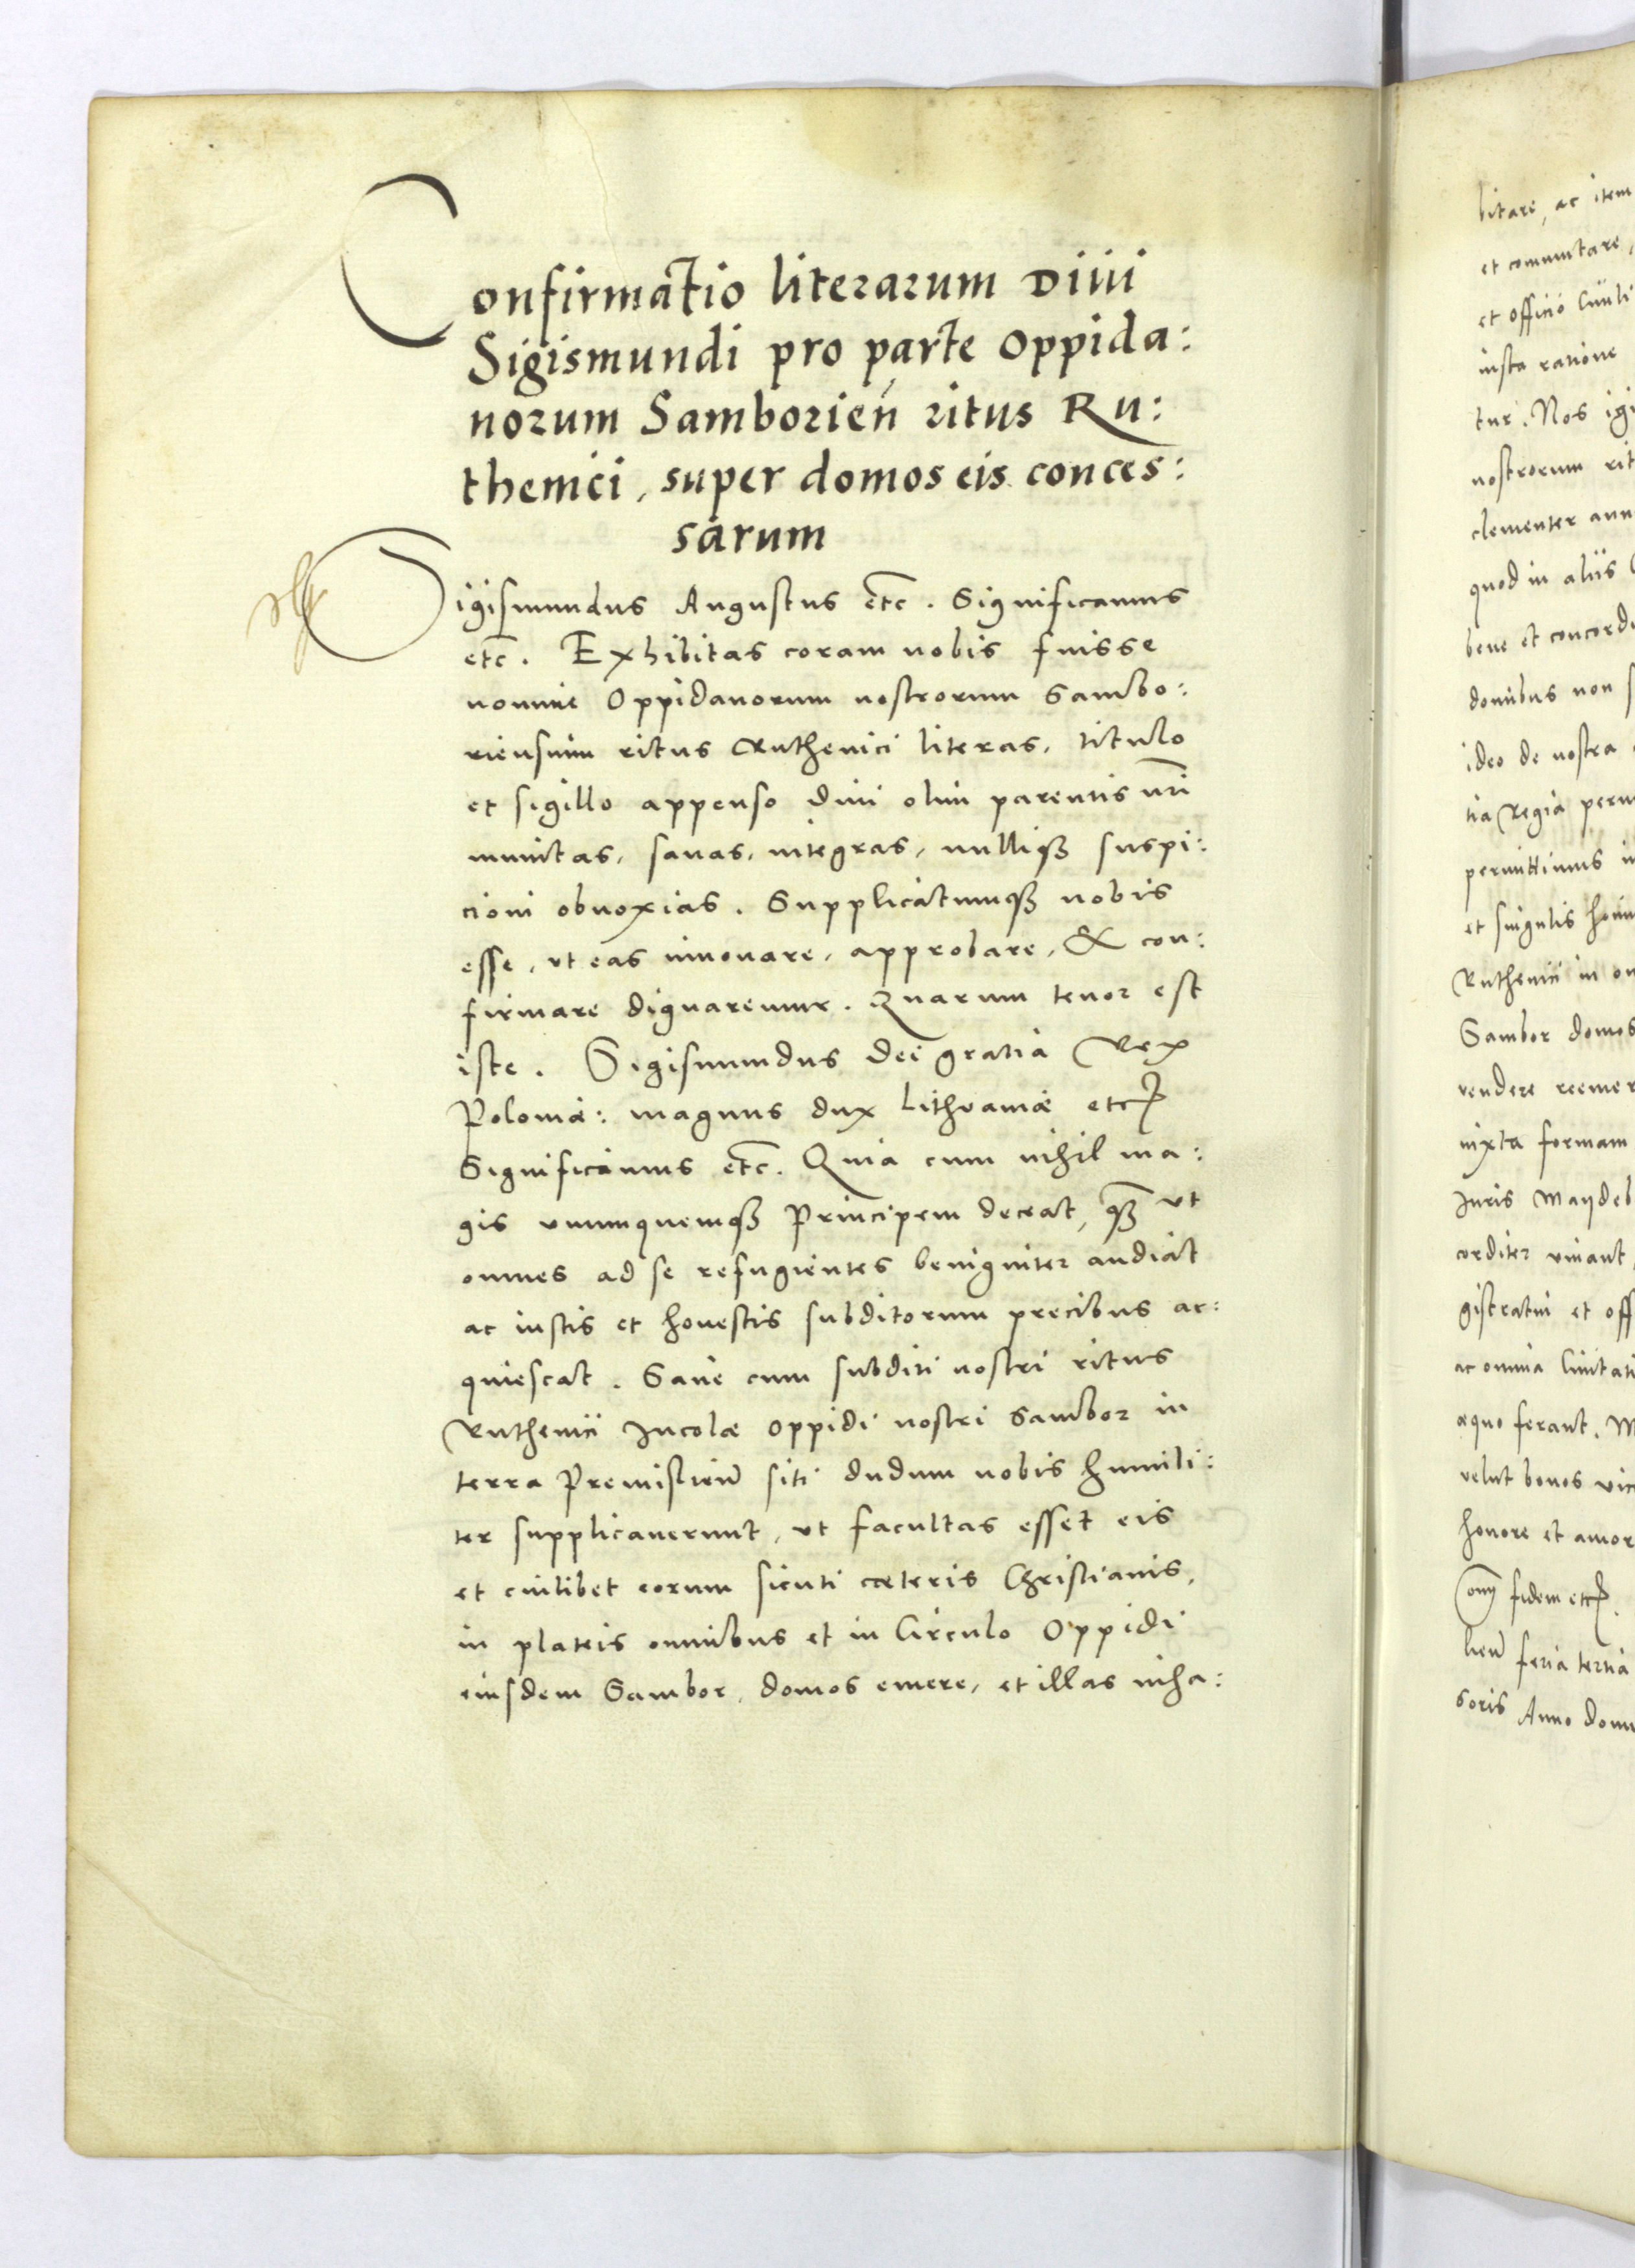 Confirmatio literarum Diui
Sigismundi pro parte Oppida:
norum Samborień ritus Ru:
thenici, super domos eis conces:
sarum
Sigismundus Augustus etc. Significamus
etc. Exhibitas coram nobis fuisse
nomine Oppidanorum nostrorum Sambo:
riensium ritus Ruthenici literas, titulo
et sigillo appenso diui olim parentis nri̅
munitas, sanas, integras, nulliqꝫ suspi:
cioni obnoxias. Supplicatumqꝫ nobis
esse, vt eas innouare, approbare, & con:
firmare dignaremur. Quarum tenor est
iste. Sigismundus Dei gratia Rex
Poloniæ: magnus dux Lithvaniæ etc
Significamus etc. Quia cum nihil ma:
gis vnumquemqꝫ Principem deceat, qꝫ̅ vt
omnes ad se refugientes benigniter audiat
ac iustis et honestis subditorum precibus ac:
quiescat. Sane cum subditi nostri ritus
Ruthenici Incolæ oppidi nostri Sambor in
terra Premislień siti dudum nobis humili:
ter supplicauerunt, vt facultas esset eis
et cuilibet eorum sicuti cæteris Christianis,
in plateis omnibus et in Circulo Oppidi
eiusdem Sambor, domos emere, et illas inha:
bitare, ac item
et commutare,
et officio Ciuli
iusta ratione
tur. Nos igi
nostrorum rit
clementer ann
quod in aliis
bene et concord
domibus non
ideo de nostra
tia Regia perm
permittimus
et singulis homi
Ruthenici in
Sambor domos
vendere reemer
iuxta formam
Iuris Maydeb
corditer viuant,
gistratui et off
ac omnia Ciuitati
æquo ferant.
velut bonos vic
honore et amor
fidem etc.
feria tertia
Anno Domi